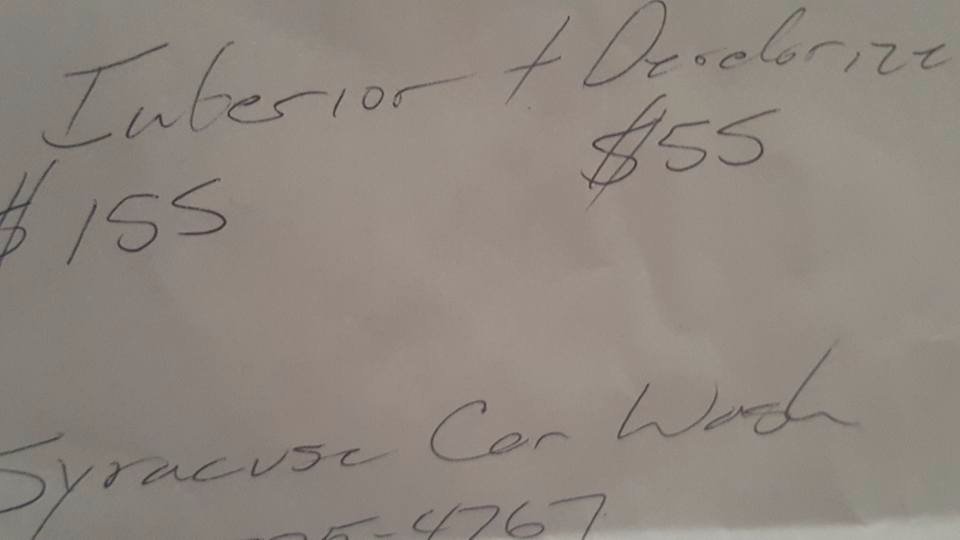 Interior + Deodorize
$155 $55
Syracuse Car Wash
5-4767